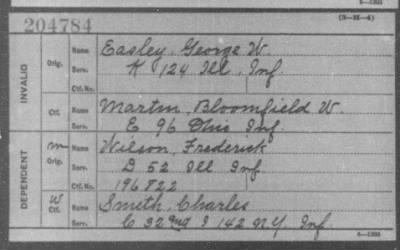 204784
(3—M—4)
INVALID
Orig.
Name
Easley, George W.
Serv.
K 124 Ill. Inf.
Ctf. No.
Ctf.
Name
Martin, Bloomfield W.
Serv.
E 96 Ohio Inf.
DEPENDENT
M
Orig.
Name
Wilson, Frederick
Serv.
D 52 Ill Inf
Ctf. No.
196822
W
Ctf.
Name
Smith, Charles
Serv.
C 32 Ind I 142 N.Y. Inf.